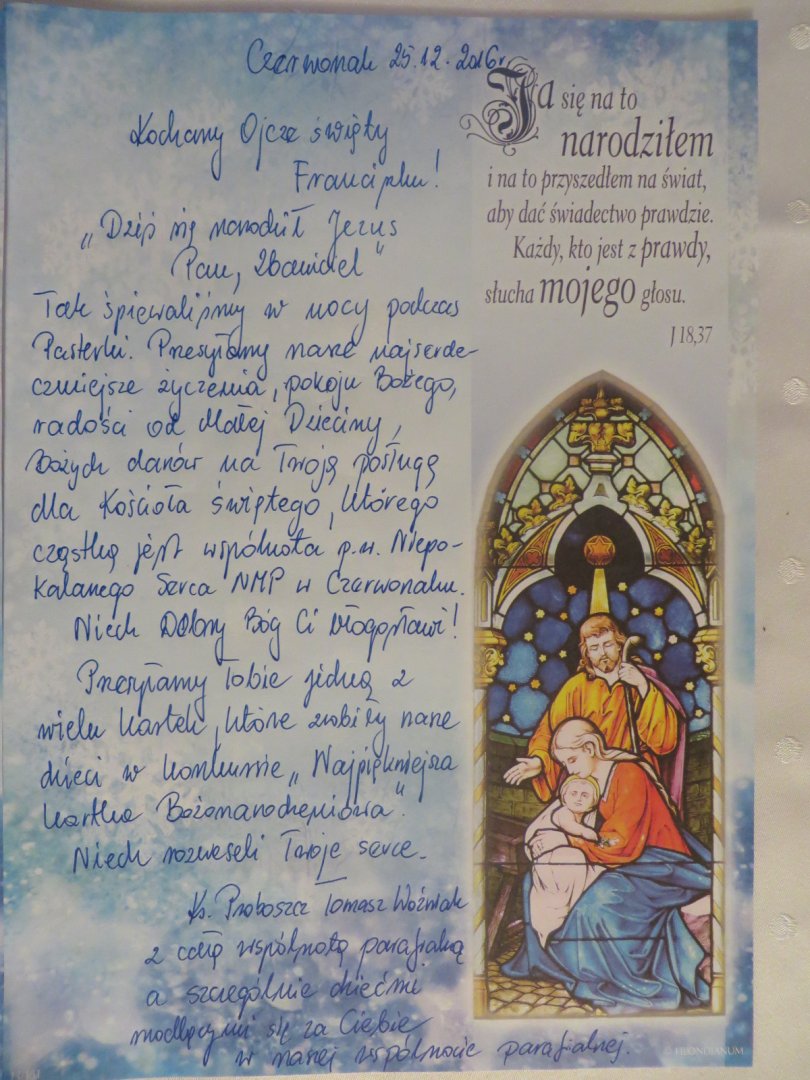 Czerwonak 25.12.2016r.
Kochany Ojcze święty
Franciszku!
„Dziś się narodził Jezus
Pan, Zbawiciel”
Tak śpiewaliśmy w nocy podczas
Pasterki. Przesyłamy nasze najserde-
czniejsze życzenia, pokoju Bożego,
radości od Małej Dzieciny,
Bożych darów na Twoją posługę
dla Kościoła świętego, którego
cząstką jest wspólnota p.w. Niepo-
kalanego Serca NMP w Czerwonaku.
Niech Dobry Bóg Ci błogosławi!
Przesyłamy Tobie jedną z
wielu kartek, które zrobiły nasze
dzieci w konkursie „Najpiękniejsza
kartka Bożonarodzeniowa”.
Niech rozweseli Twoje serce.
Ks. Proboszcz Tomasz Woźniak
z całą wspólnotą parafialną
a szczególnie dziećmi
modlącymi się za Ciebie
w naszej wspólnocie parafialnej.
Ja się na to
narodziłem
i na to przyszedłem na świat,
aby dać świadectwo prawdzie.
Każdy, kto jest z prawdy,
słucha mojego głosu.
J 18,37